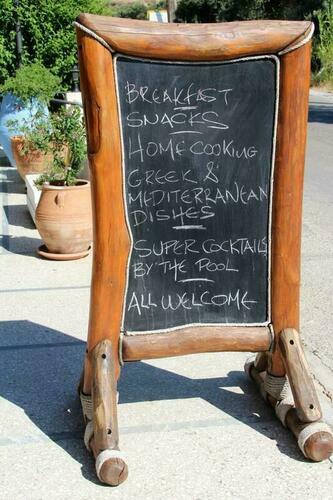 BREAKFAST
SNACKS
HOMECOOKING
GREEK &
MEDITERRANEAN
DISHES
SUPER COCKTAILS
BY THE POOL
ALL WELCOME